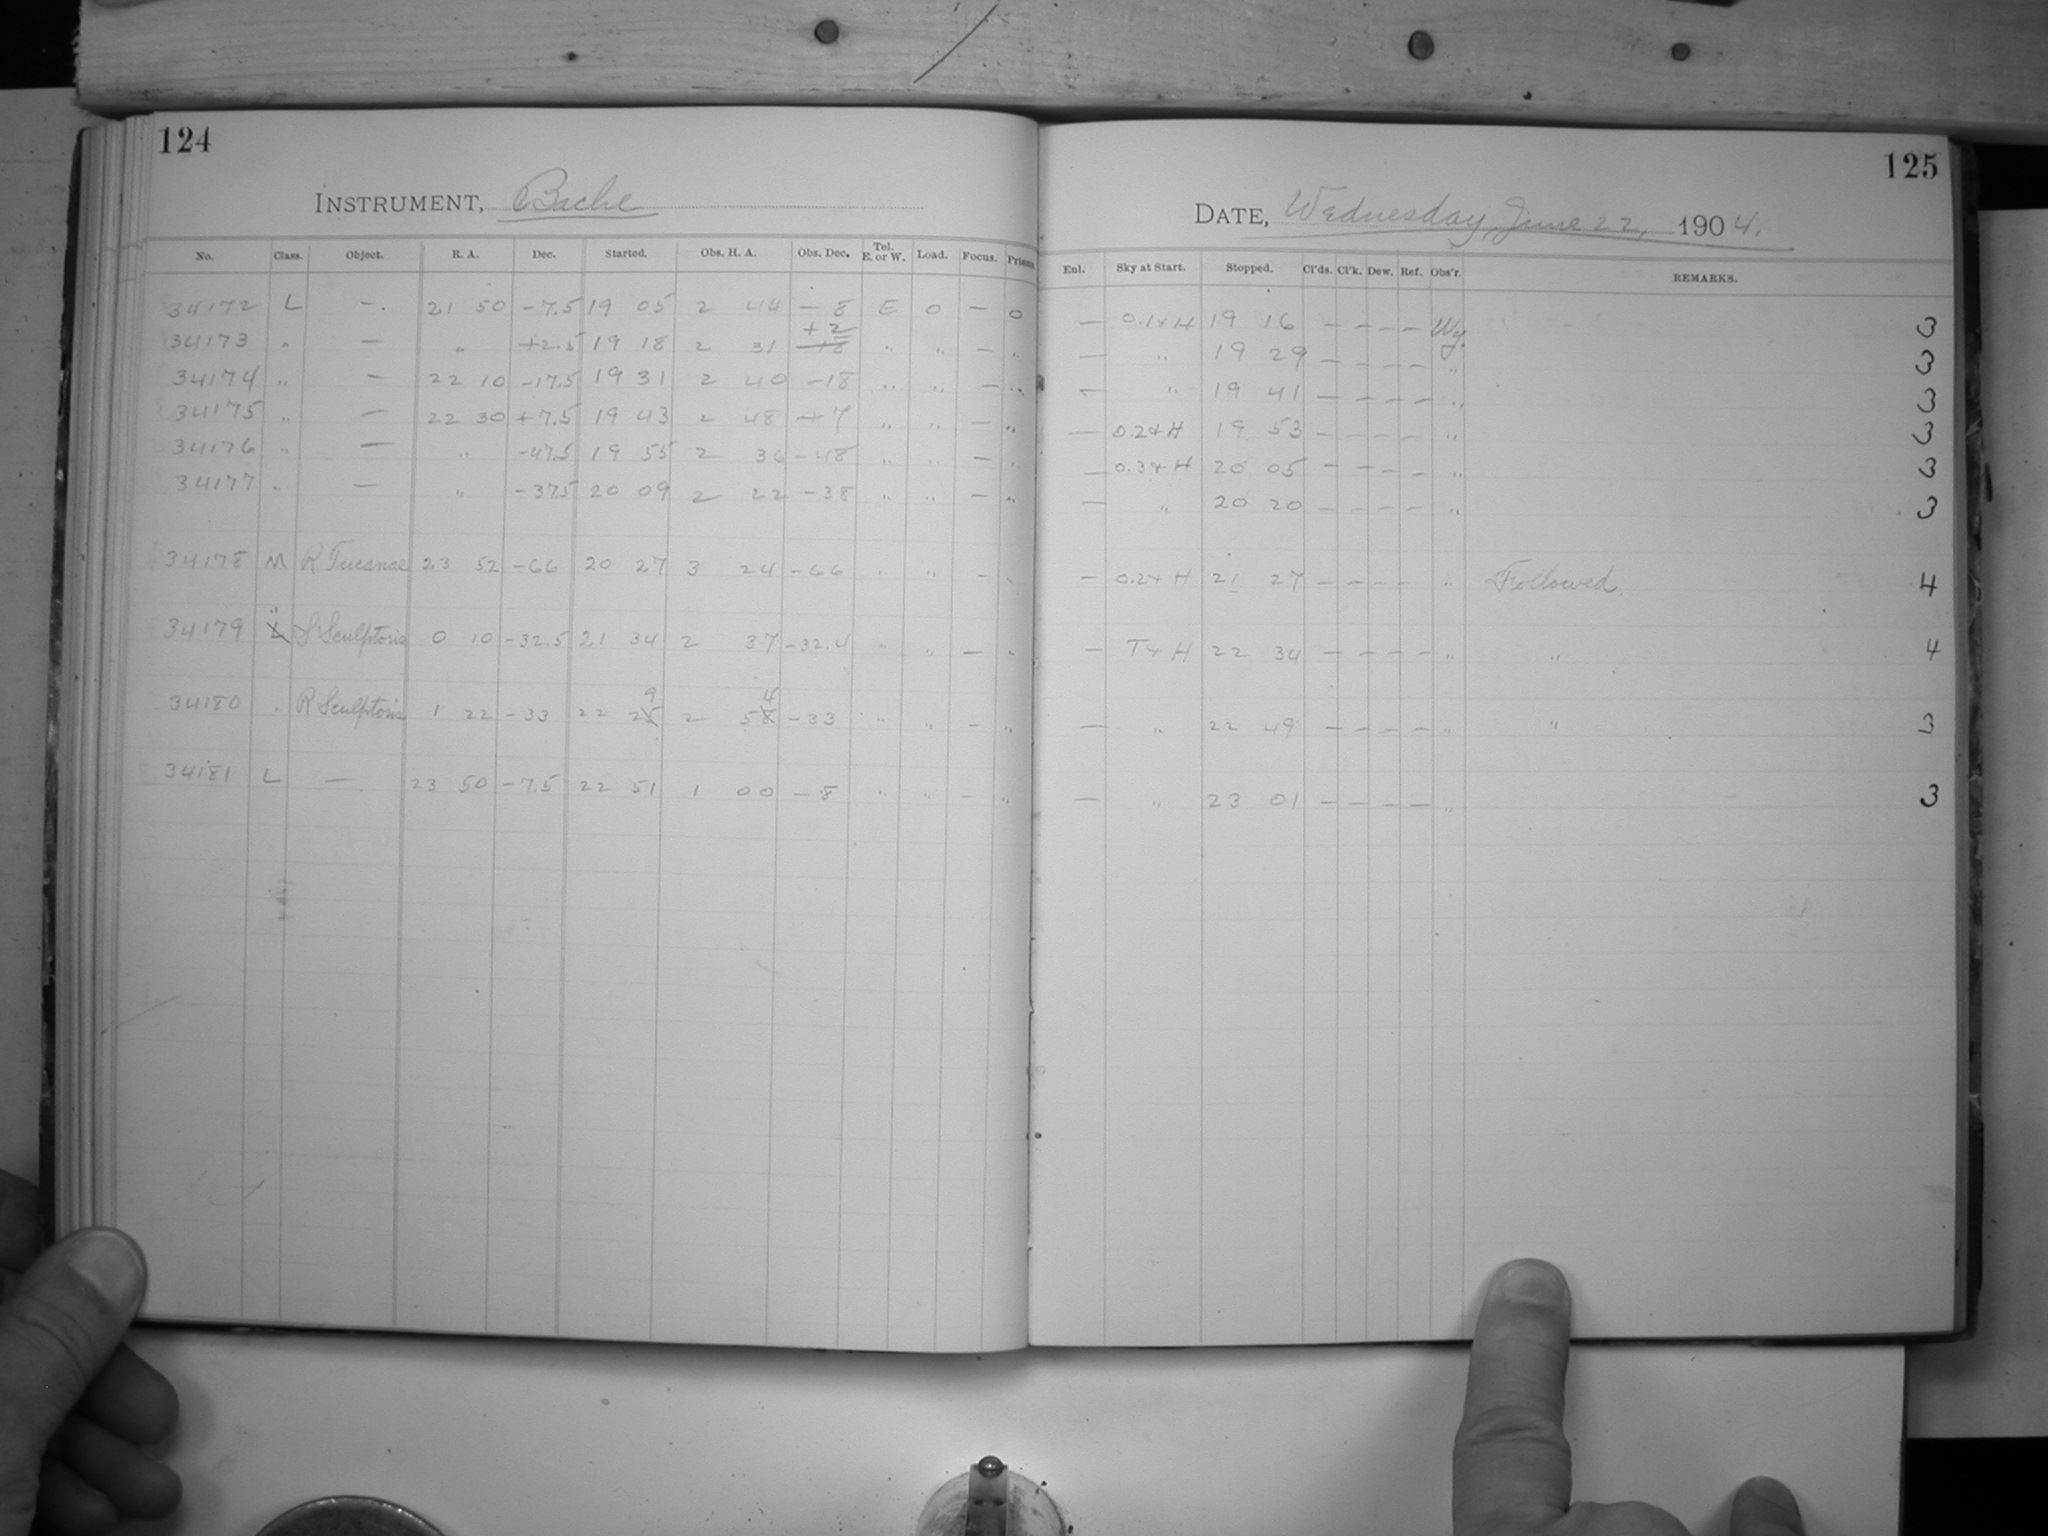 124
INSTRUMENT, Bache
No. Class. Object. R. A. Dec. Started. Obs. H. A. Obs. Dec. Tel. E. or W. Load. Focus. Prism
34172 L — 21 50 -7.5 19 05 2 44 -8 E 0 — 0
34173 " — " +2.5 19 18 2 31 +2 " " — "
34174 " — 22 10 -17.5 19 31 2 40 -18 " " — "
34175 " — 22 30 +7.5 19 43 2 48 +7 " " — "
34176 " — " -47.5 19 55 2 36 -48 " " — "
34177 " — " -375 20 09 2 22 -38 " " — "
34178 M R Tucanae 23 52 -66 20 27 3 24 -66 " " — "
34179 " S Sculptoris 0 10 -32.5 21 34 2 37 -32.4 " " — "
34180 " R Sculptoris 1 22 -33 22 29 2 54 -33 " " — "
34181 L — 23 50 -7.5 22 51 1 00 -8 " " — "
125
DATE, Wednesday, June 22, 1904.
Enl. Sky at Start. Stopped. Cl'ds. Cl'k. Dew. Ref. Obs'r. REMARKS.
— 0.1+H 19 16 — — — — Wy. 3
— " 19 29 — — — — " 3
— " 19 41 — — — — " 3
— 0.2+H 19 53 — — — — " 3
— 0.3+H 20 05 — — — — " 3
— " 20 20 — — — — " 3
— 0.2+H 21 27 — — — — " Followed. 4
— T+H 22 34 — — — — " " 4
— " 22 49 — — — — " " 3
— " 23 01 — — — — " 3